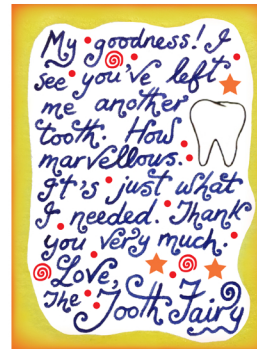 My goodness! I
see you've left
me another
tooth. How
marvellous.
It's just what
I needed. Thank
you very much.
Love,
The Tooth Fairy